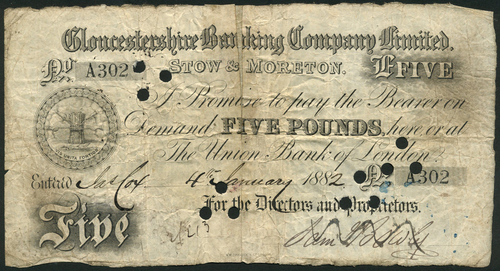 Gloucestershire Banking Company Limited.
No A302 STOW & MORETON. £FIVE
I Promise to pay the Bearer on
Demand FIVE POUNDS, here or at
The Union Bank of London.
Entered Jas Cox 4th January 1882 No A302
For the Directors and Proprietors.
Five